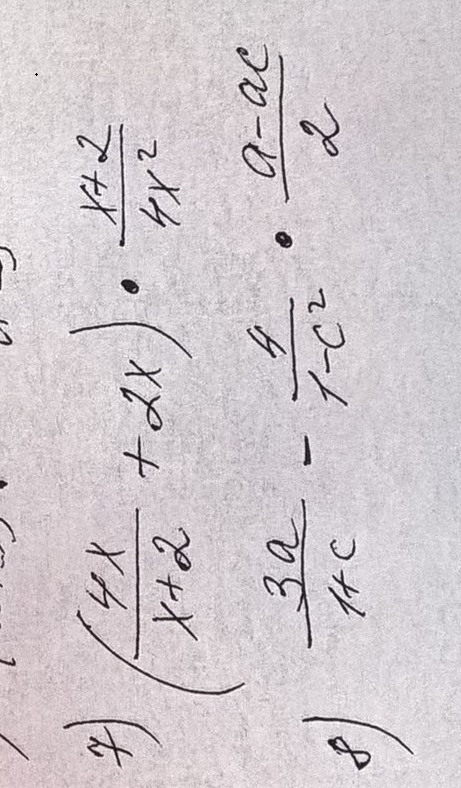 7) (4x/(x+2) + 2x) · (x+2)/(4x²)
8) 3a/(1+c) - 4/(1-c²) · (a-ac)/2